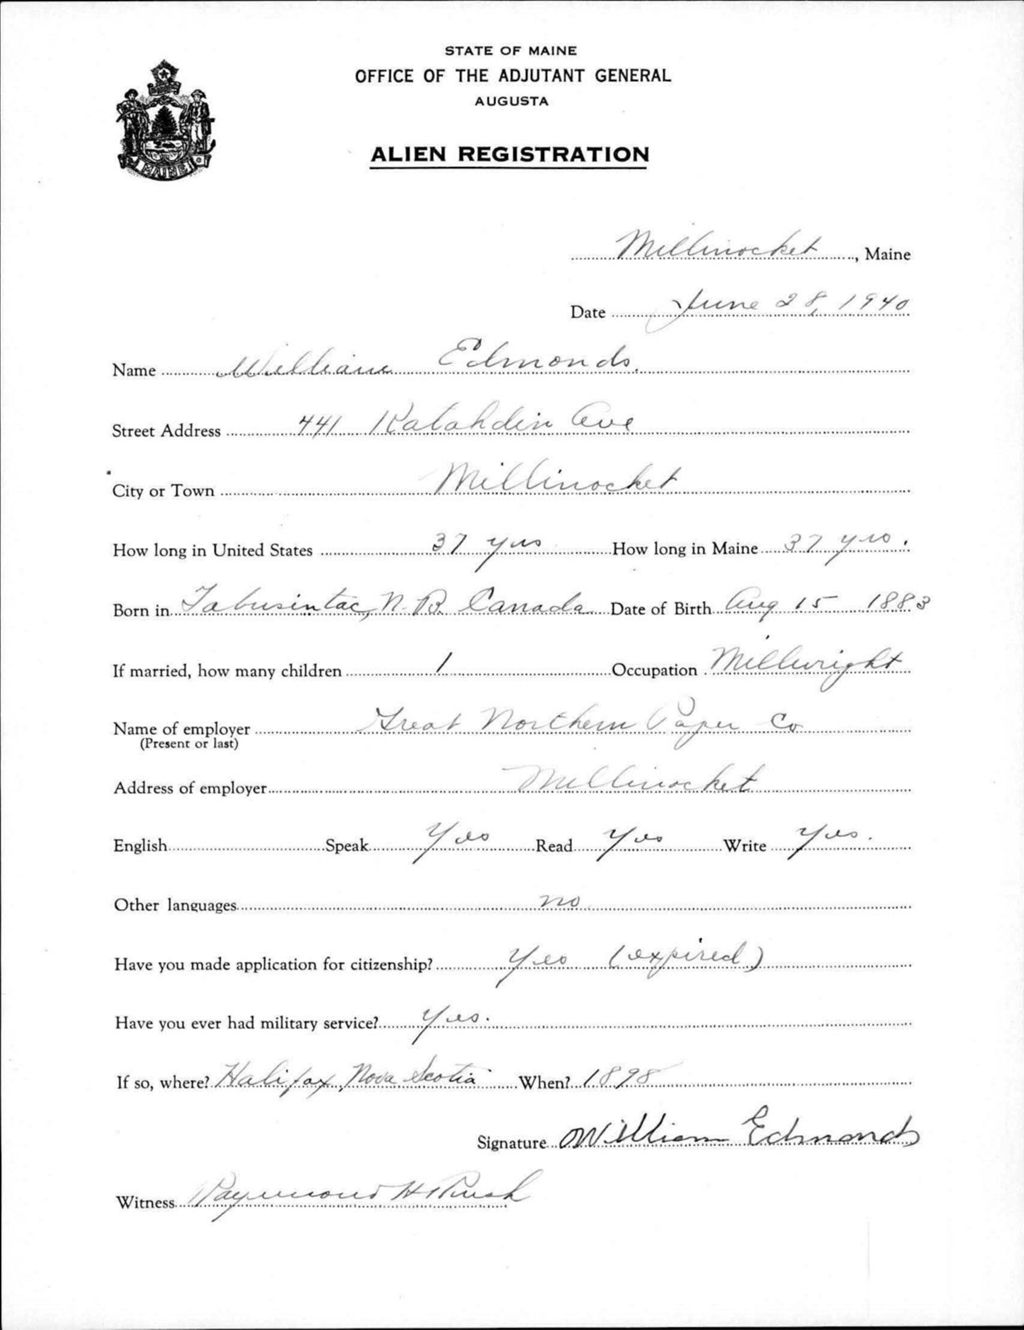 STATE OF MAINE
OFFICE OF THE ADJUTANT GENERAL
AUGUSTA
ALIEN REGISTRATION
MAINE
Millinocket, Maine
Date June 28, 1940
Name William Edmonds.
Street Address 441 Katahdin Ave
City or Town Millinocket
How long in United States 37 yrs How long in Maine 37 yrs.
Born in Tabusintac, N.B. Canada Date of Birth Aug 15 1883
If married, how many children 1 Occupation Millwright
Name of employer Great Northern Paper Co
(Present or last)
Address of employer Millinocket
English Speak Yes Read Yes Write Yes.
Other languages no
Have you made application for citizenship? Yes (expired)
Have you ever had military service? Yes.
If so, where? Halifax, Nova Scotia When? 1898
Signature William Edmonds
Witness Raymond H